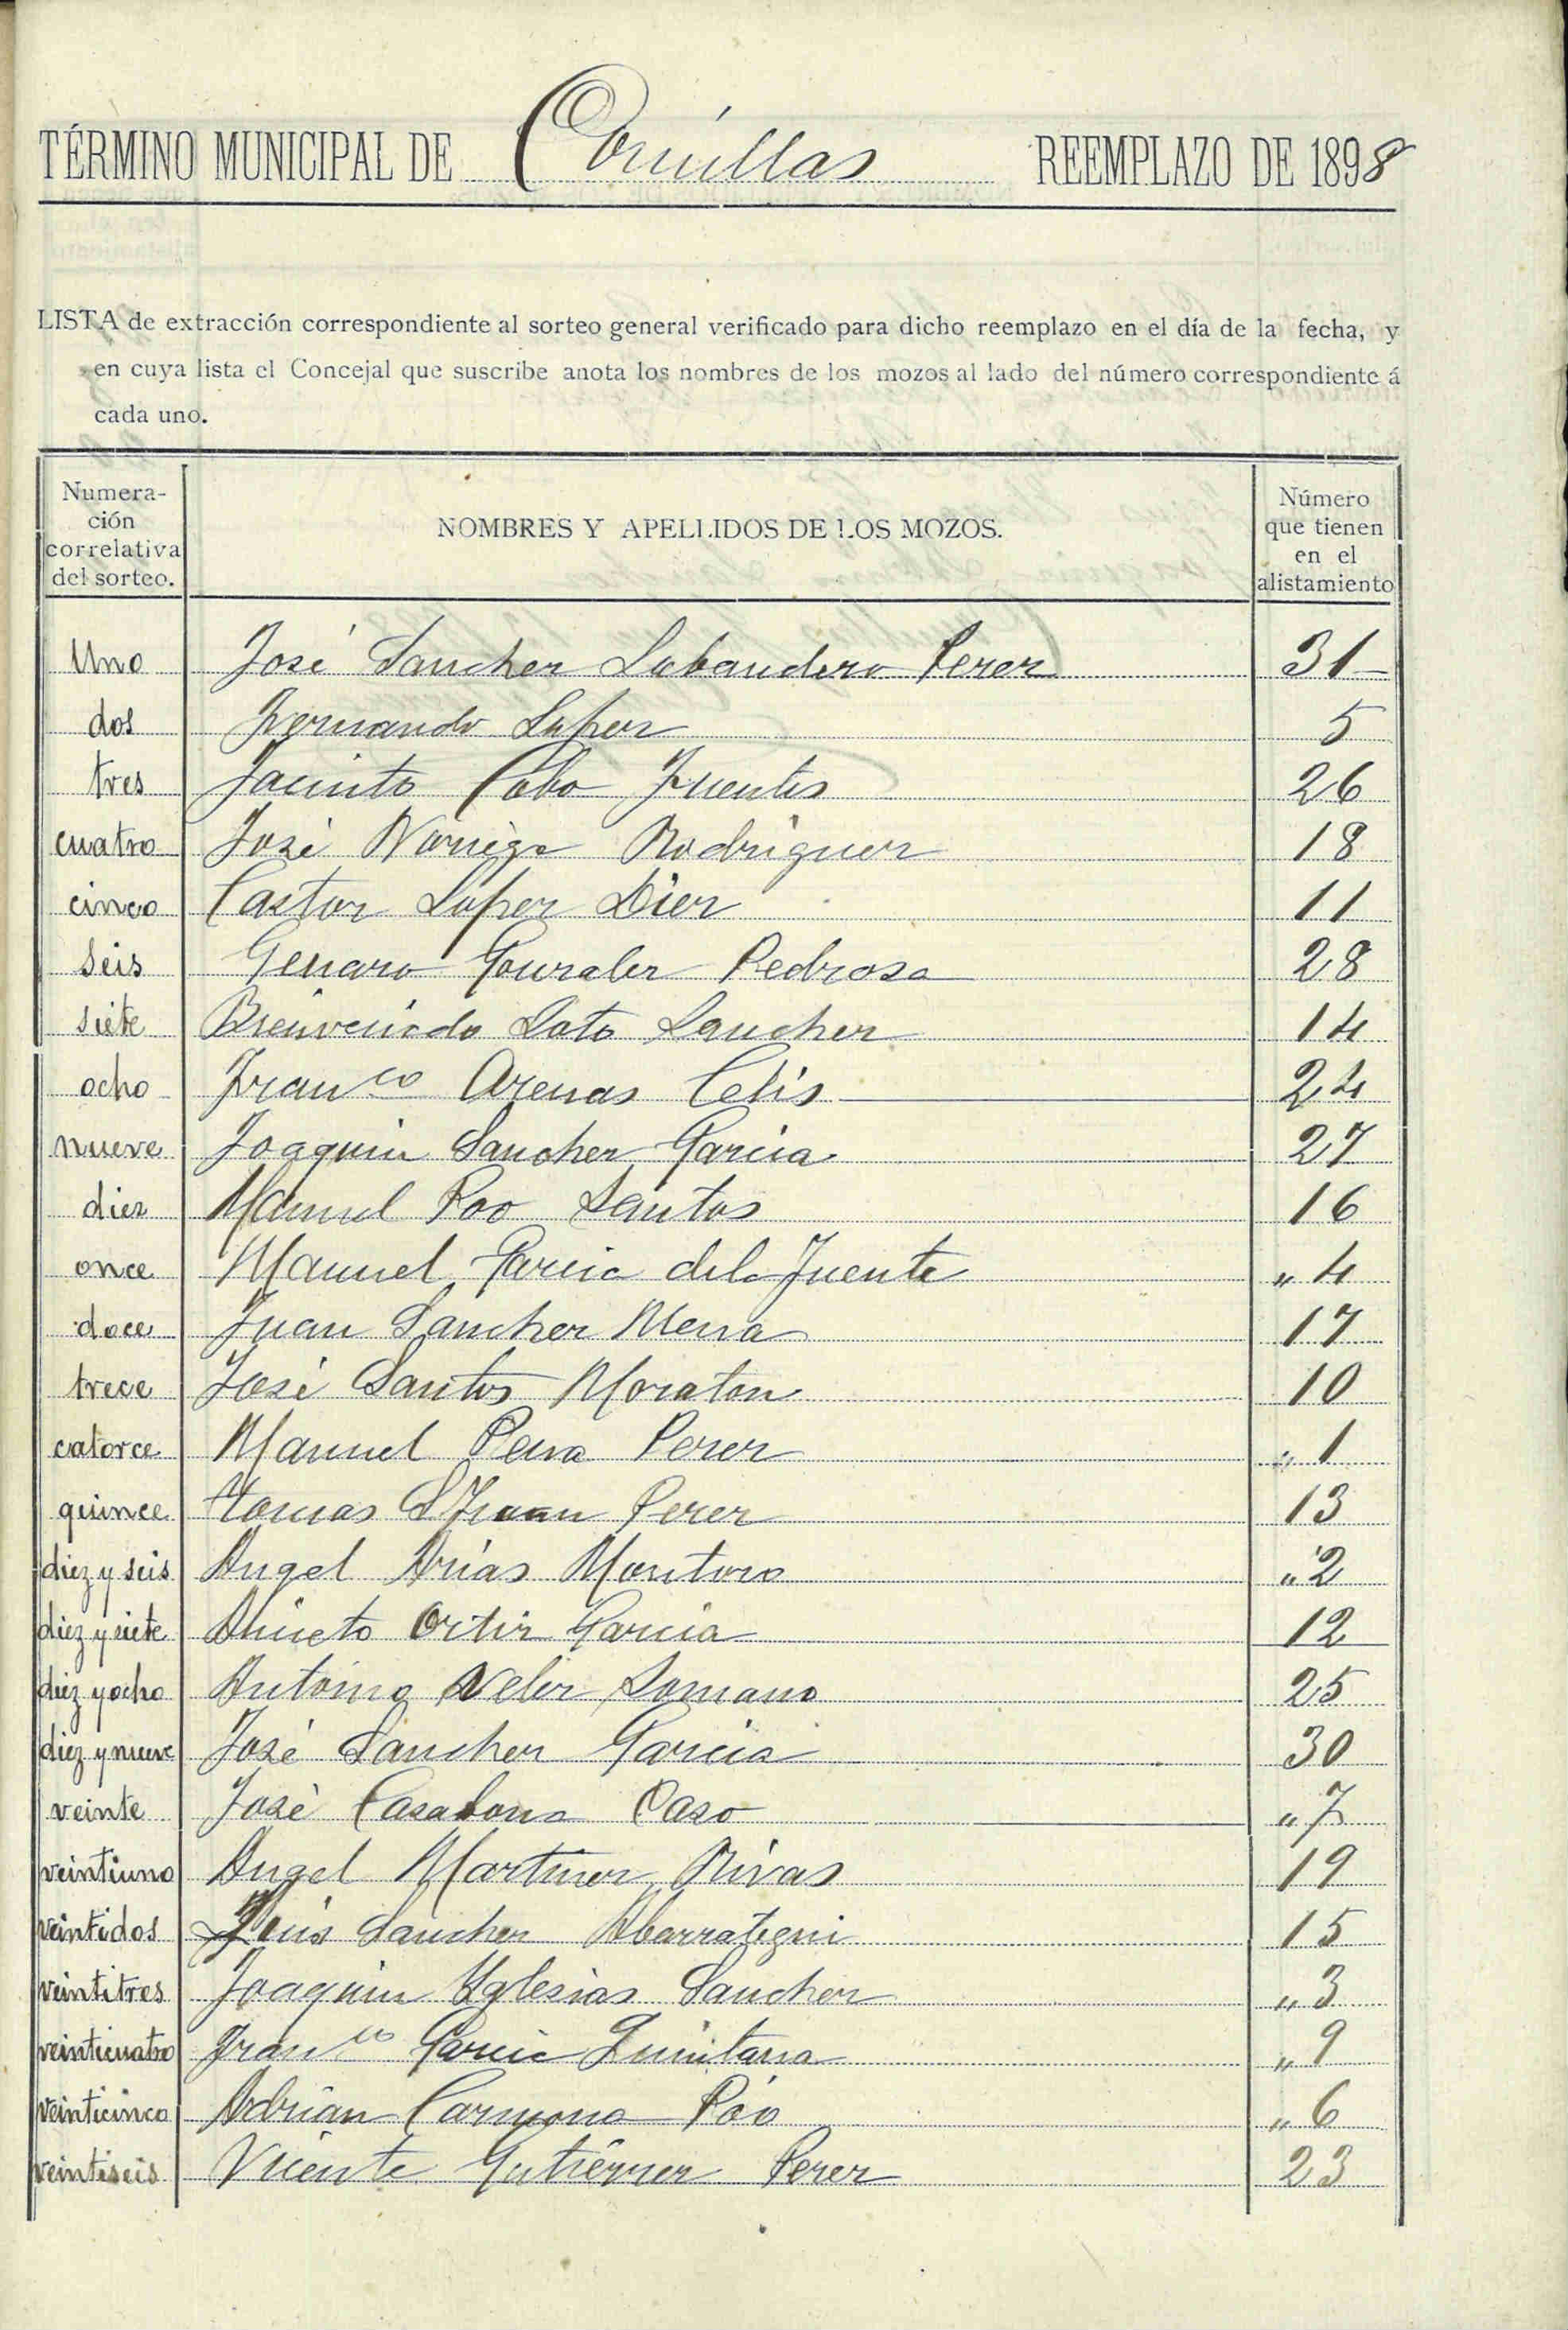 TÉRMINO MUNICIPAL DE Comillas REEMPLAZO DE 1898
LISTA de extracción correspondiente al sorteo general verificado para dicho reemplazo en el día de la fecha, y
en cuya lista el Concejal que suscribe anota los nombres de los mozos al lado del número correspondiente á
cada uno.
Numera-
ción
correlativa
del sorteo.
NOMBRES Y APELLIDOS DE LOS MOZOS.
Número
que tienen
en el
alistamiento
Uno José Sanchez Labandero Perez 31
dos Fernando Lopez 5
tres Jacinto Cobo Fuentes 26
cuatro José Noriega Rodriguez 18
cinco Castor López Diez 11
seis Genaro Gonzalez Pedrosa 28
siete Bienvenido Soto Sanchez 14
ocho Franco Arenas Celis 24
nueve Joaquin Sanchez Garcia 27
diez Manuel Poo Santos 16
once Manuel Garcia de la Fuente " 4
doce Juan Sanchez Mena 17
trece José Santos Moraton 10
catorce Manuel Pena Perez " 1
quince Tomas SJuan Perez 13
diez y seis Angel Arias Montoro " 2
diez y siete Aniceto Ortiz Garcia 12
diez y ocho Antonio Velez Somano 25
diez y nueve José Sanchez Garcia 30
veinte José Casabona Caso " 7
veintiuno Angel Martinez Rivas 19
veintidos Luis Sanchez Abarrategui 15
veintitres Joaquin Yglesias Sanchez " 3
veinticuatro Franco Garcia Quintana " 9
veinticinco Adrian Carmona Póo " 6
veintiseis Vicente Gutiérrez Perez 23